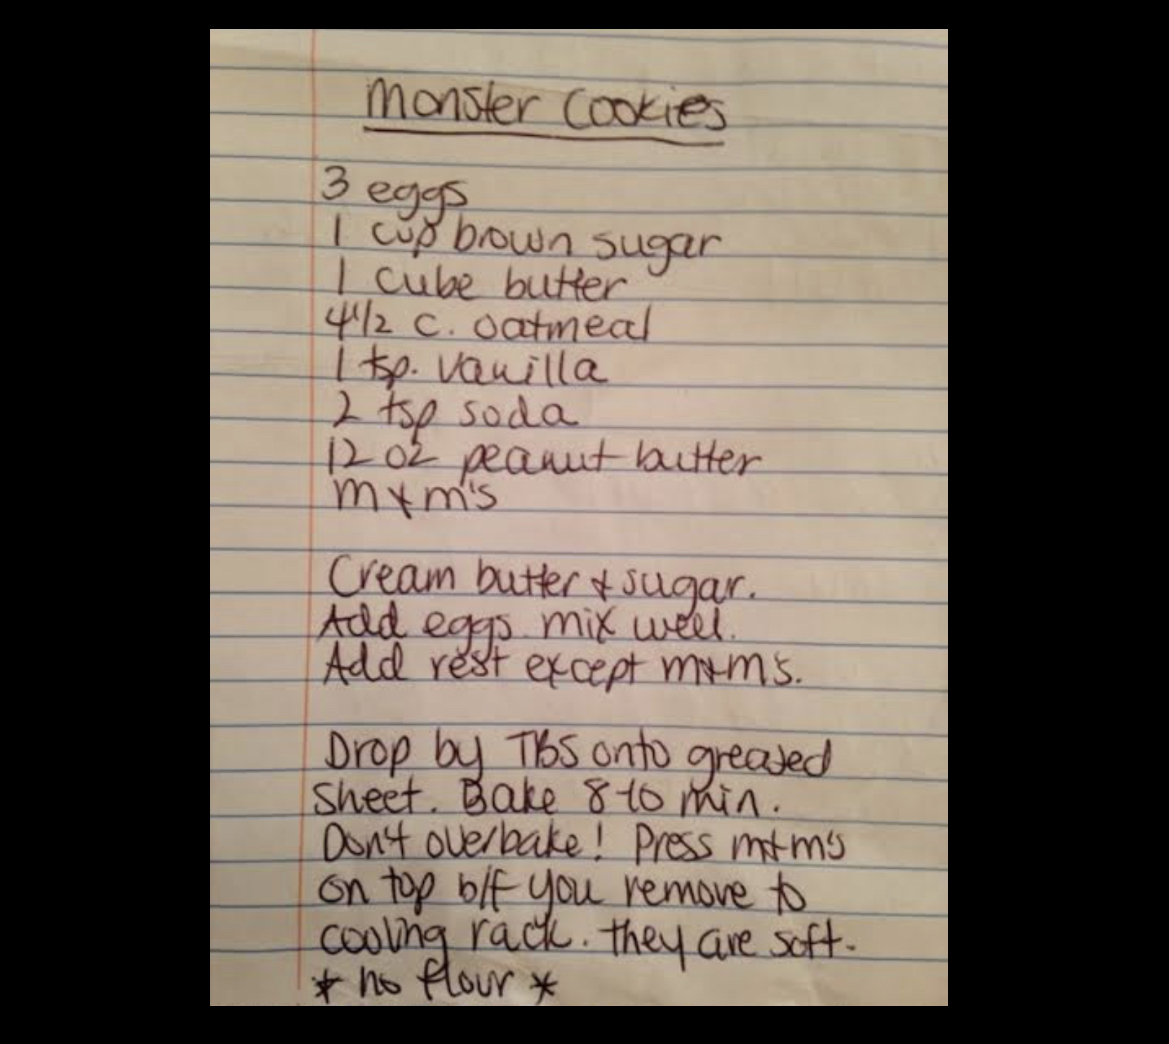 Monster Cookies
3 eggs
1 cup brown sugar
1 cube butter
4 1/2 c. oatmeal
1 tsp. vanilla
2 tsp soda
12 oz peanut butter
m+m's
Cream butter + sugar.
Add eggs. mix well.
Add rest except m+m's.
Drop by TBS onto greased
sheet. Bake 8-10 min.
Don't overbake! Press m+m's
on top b/f you remove to
cooling rack. they are soft.
* no flour *